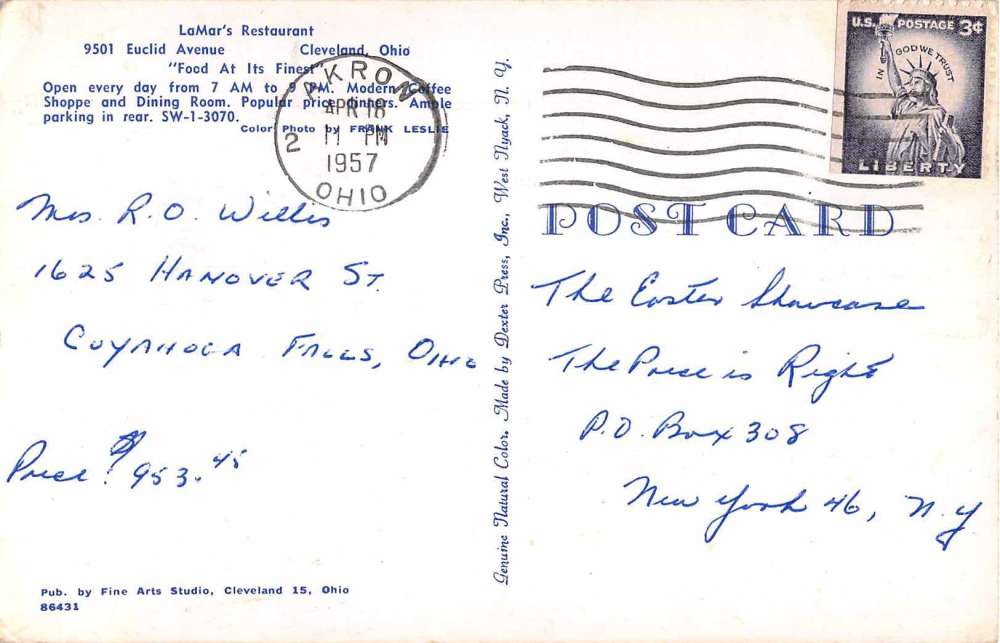 LaMar's Restaurant
9501 Euclid Avenue Cleveland, Ohio
"Food At Its Finest"
Open every day from 7 AM to 9 PM. Modern Coffee
Shoppe and Dining Room. Popular price dinners. Ample
parking in rear. SW-1-3070.
Color Photo by FRANK LESLIE
AKRON
APR 18
2 11 PM
1957
OHIO
U.S. POSTAGE 3¢
IN GOD WE TRUST
LIBERTY
POST CARD
Mrs. R.O. Willis
1625 HANOVER ST.
CUYAHOGA FALLS, OHIO
Price $953.45
Genuine Natural Color. Made by Dexter Press, Inc., West Nyack, N. Y.
The Easter Showcase
The Price is Right
P.O. Box 308
New York 46, N.Y
Pub. by Fine Arts Studio, Cleveland 15, Ohio
86431